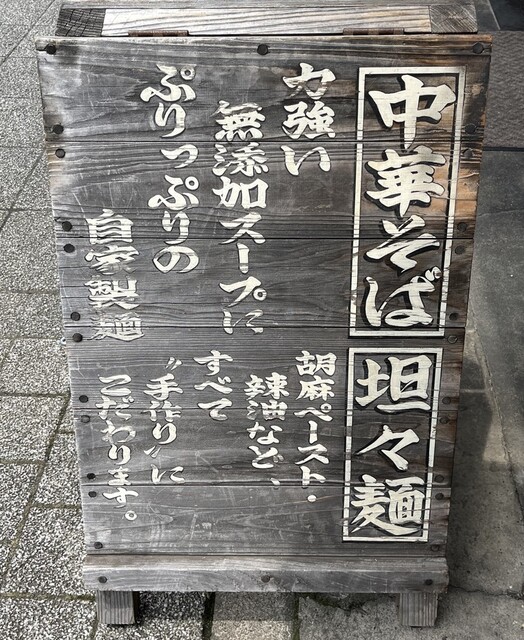 中華そば
力強い
無添加スープに
ぷりっぷりの
自家製麺
坦々麺
胡麻ペースト・
辣油など、
すべて
"手作り"に
こだわります。